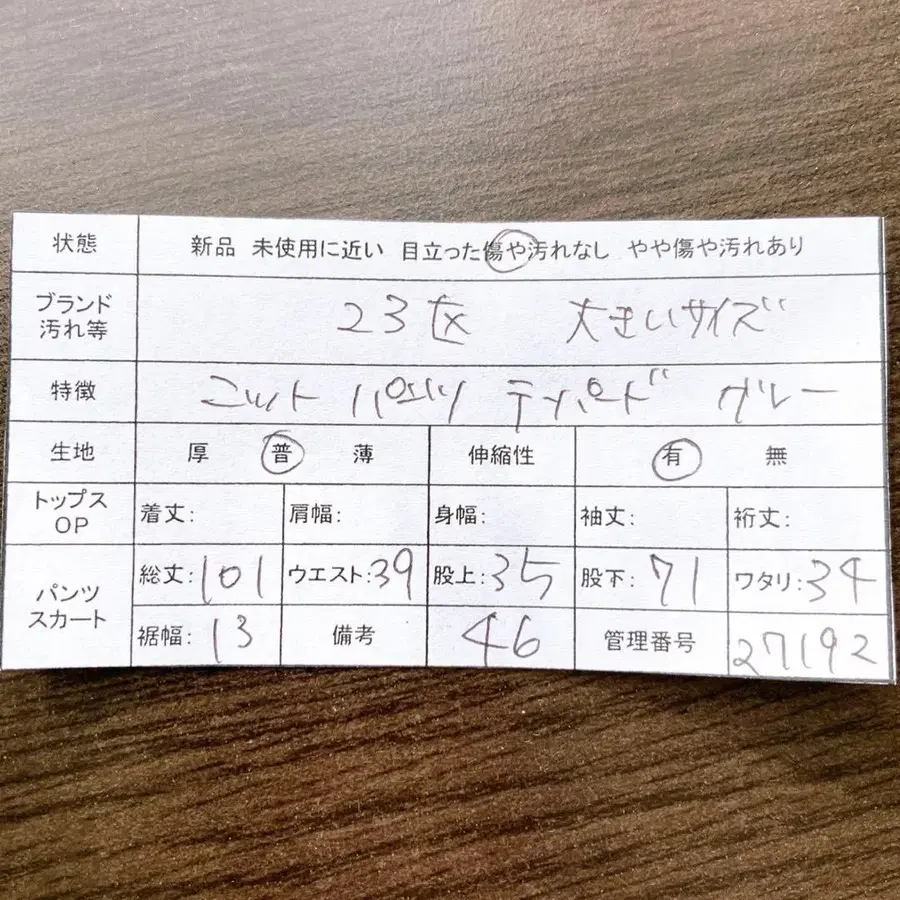 状態 新品 未使用に近い 目立った傷や汚れなし やや傷や汚れあり
ブランド
汚れ等 23区 大きいサイズ
特徴 ニット パンツ テーパード グレー
生地 厚 普 薄 伸縮性 有 無
トップス
OP 着丈: 肩幅: 身幅: 袖丈: 裄丈:
パンツ
スカート 総丈:101 ウエスト:39 股上:35 股下:71 ワタリ:34
裾幅:13 備考 46 管理番号 27192